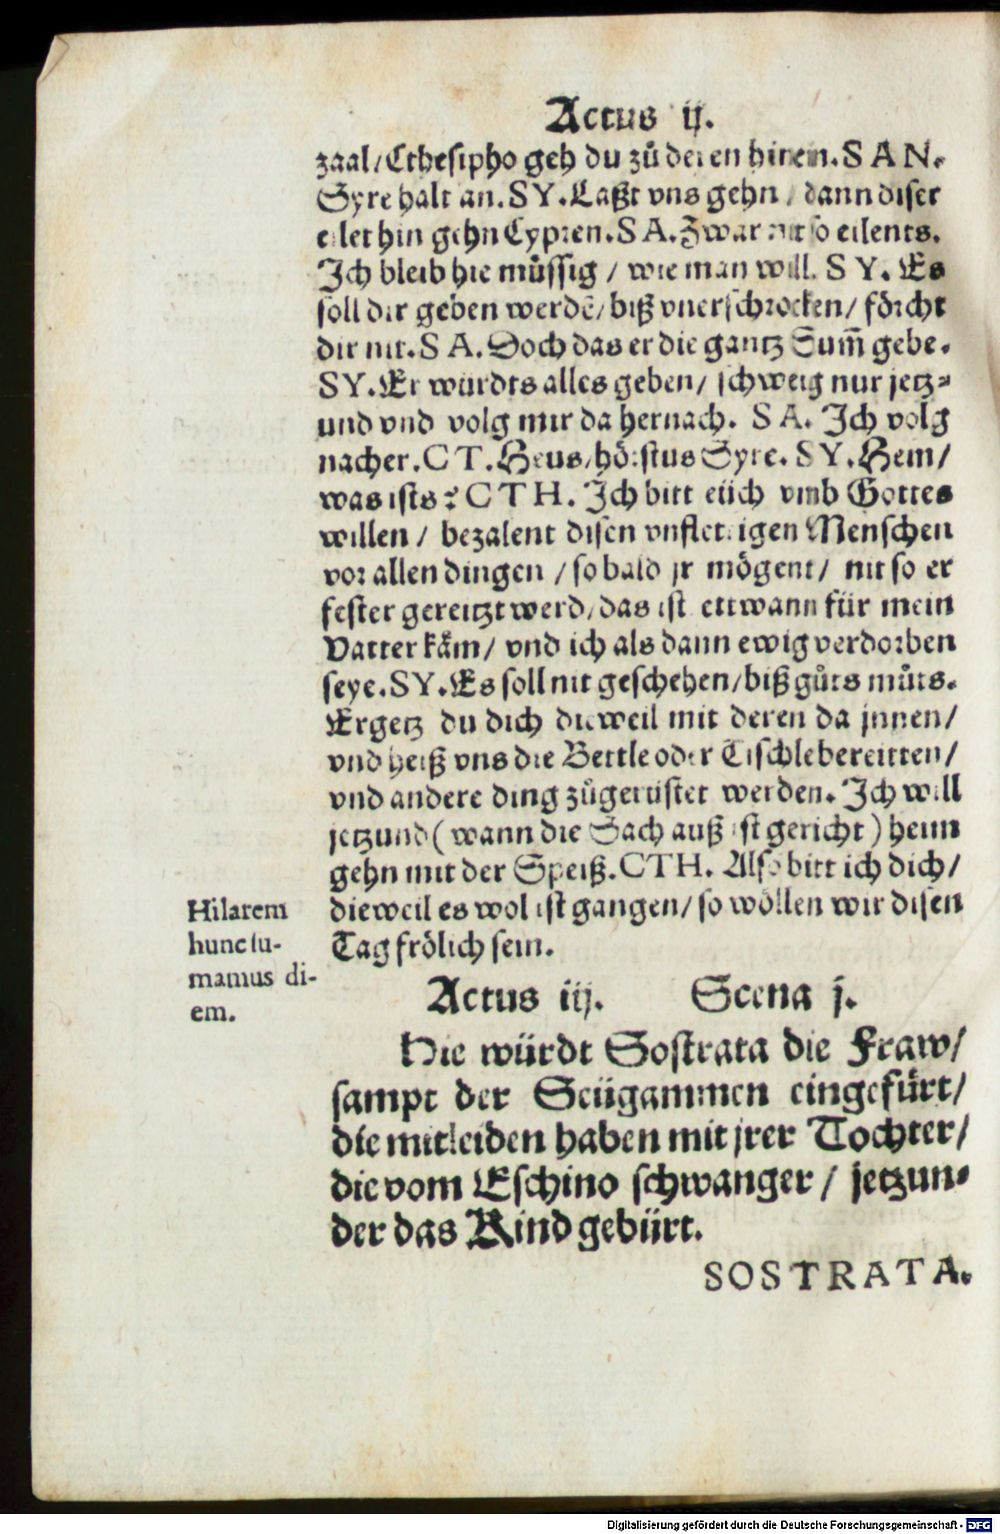 Actus ij.
zaal/Cthesipho geh du zů deren hinein. SAN.
Syre halt an. SY. Laßt vns gehn / dann diser
eilet hin gehn Cypren. SA. Zwar nit so eilents.
Ich bleib hie müssig / wie man will. SY. Es
soll dir geben werdē/ biß vnerschrocken/ förcht
dir nit. SA. Doch das er die gantz Sum̄ gebe.
SY. Er würdts alles geben/ schweig nur jetz-
und vnd volg mir da hernach. SA. Ich volg
nacher. CT. Heus/ hörstus Syre. SY. Hem/
was ists? CTH. Ich bitt eüch vmb Gottes
willen / bezalent disen vnflettigen Menschen
vor allen dingen / so bald jr mögent/ nit so er
fester gereitzt werd/ das ist ettwann für mein
Vatter kåm/ vnd ich als dann ewig verdorben
seye. SY. Es soll nit geschehen/ biß gůts můts.
Ergetz du dich dieweil mit deren da jnnen/
vnd heiß vns die Bettle oder Tischle bereitten/
vnd andere ding zůgerüstet werden. Ich will
jetzund (wann die Sach auß ist gericht) heim
gehn mit der Speiß. CTH. Also bitt ich dich/
dieweil es wol ist gangen/ so wöllen wir disen
Tag frölich sein.
Hilarem
hunc su-
mamus di-
em.
Actus iij. Scena j.
Hie würdt Sostrata die Fraw/
sampt der Seügammen eingefürt/
die mitleiden haben mit jrer Tochter/
die vom Eschino schwanger / jetzun-
der das Kind gebürt.
SOSTRATA.
Digitalisierung gefördert durch die Deutsche Forschungsgemeinschaft - DFG